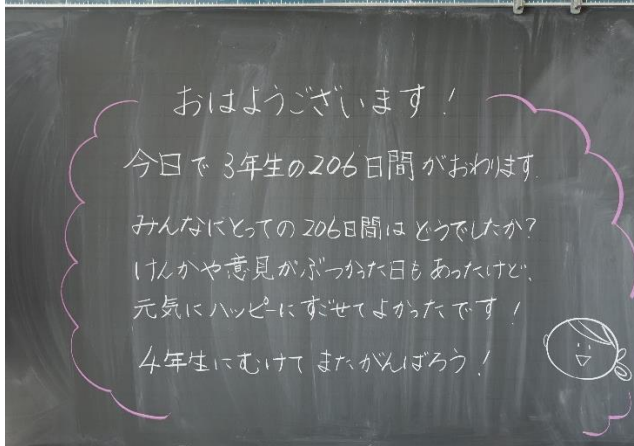 おはようございます！
今日で3年生の206日間がおわります.
みんなにとっての206日間はどうでしたか?
けんかや意見がぶつかった日もあったけど、
元気にハッピーにすごせてよかったです！
4年生にむけてまたがんばろう！